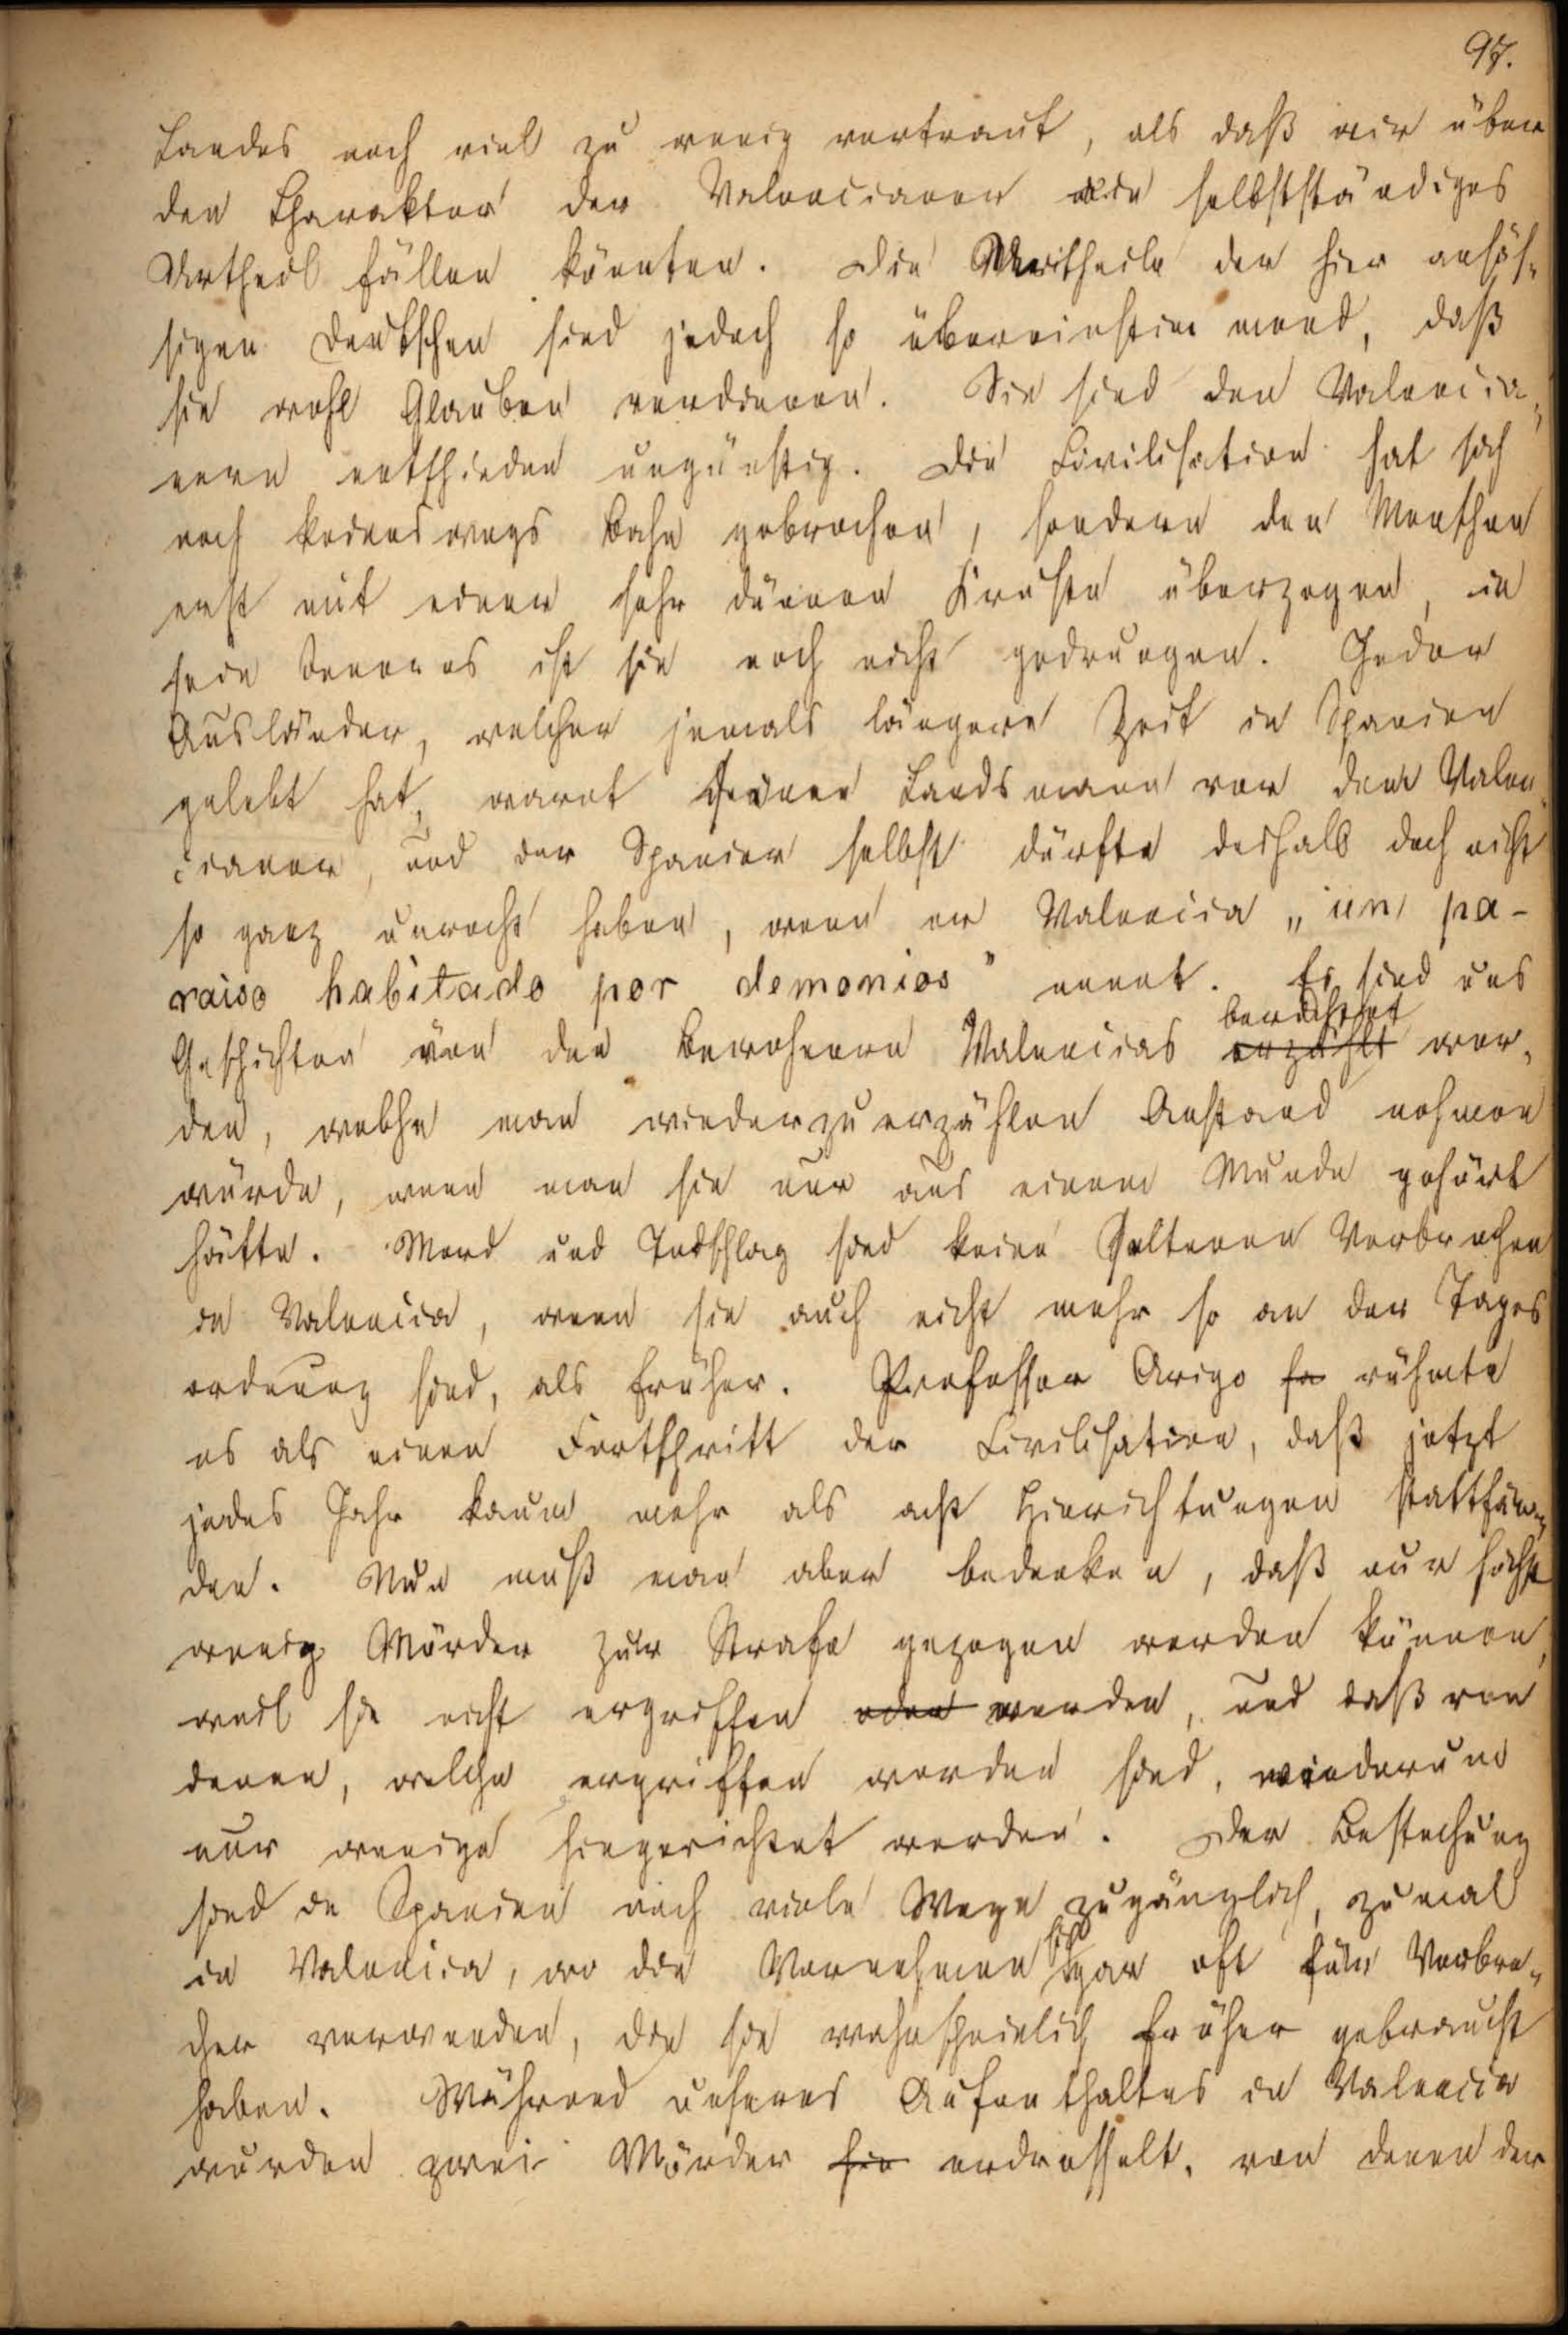 97.
Landes noch viel zu wenig vertraut, als daß wir über
den Charakter der Valencianer ein selbstständiges
Urtheil fällen könnten. Die Urtheile der hier ansäs-
sigen Deutschen sind jedoch so übereinstimmend, daß
sie wohl Glauben verdienen. Sie sind den Valencia-
nern entschieden ungünstig. Die Civilisation hat sich
noch keineswegs Bahn gebrochen, sondern den Menschen
erst mit einer sehr dünnen Kruste überzogen, in
sein Inneres ist sie noch nicht gedrungen. Jeder
Ausländer, welcher jemals längere Zeit in Spanien
gelebt hat, warnt seinen Landsmann vor dem Valen-
cianer, und der Spanier selbst dürfte deshalb doch nicht
so ganz unrecht haben, wenn er Valencia „un pa-
raiso habitado por demonios" nennt. Es sind uns
berichtet
Geschichten von den Bewohnern Valencias erzählt wor-
den, welche man wiederzuerzählen Anstand nehmen
würde, wenn man sie nur aus einem Munde gehört
hätte. Mord und Todschlag sind keine seltenen Verbrechen
in Valencia, wenn sie auch nicht mehr so an der Tages
ordnung sind, als früher. Professor Arigo rühmte
es als einen Fortschritt der Civilisation, daß jetzt
jedes Jahr kaum mehr als acht Hinrichtungen stattfän-
den. Nun muß man aber bedenken, daß nur höchst
wenig Mörder zur Strafe gezogen werden können,
weil sie nicht ergriffen oder werden, und daß von
denen, welche ergriffen worden sind, wiederum
nur wenige hingerichtet werden. Der Bestechung
sind in Spanien noch viele Wege zugänglich, zumal
in Valencia, wo die Vornehmen sich gar oft für Verbre-
cher verwenden, die sie wahrscheinlich früher gebraucht
haben. Während unseres Aufenthaltes in Valencia
wurden zwei Mörder hin erdrosselt, von denen der